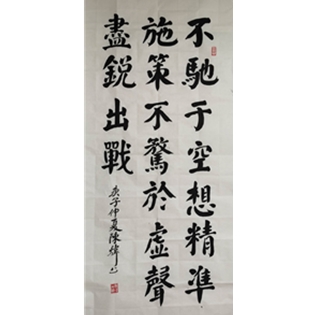 不馳于空想精準
施策不驚於虛聲
盡銳出戰
庚子仲夏陳緯